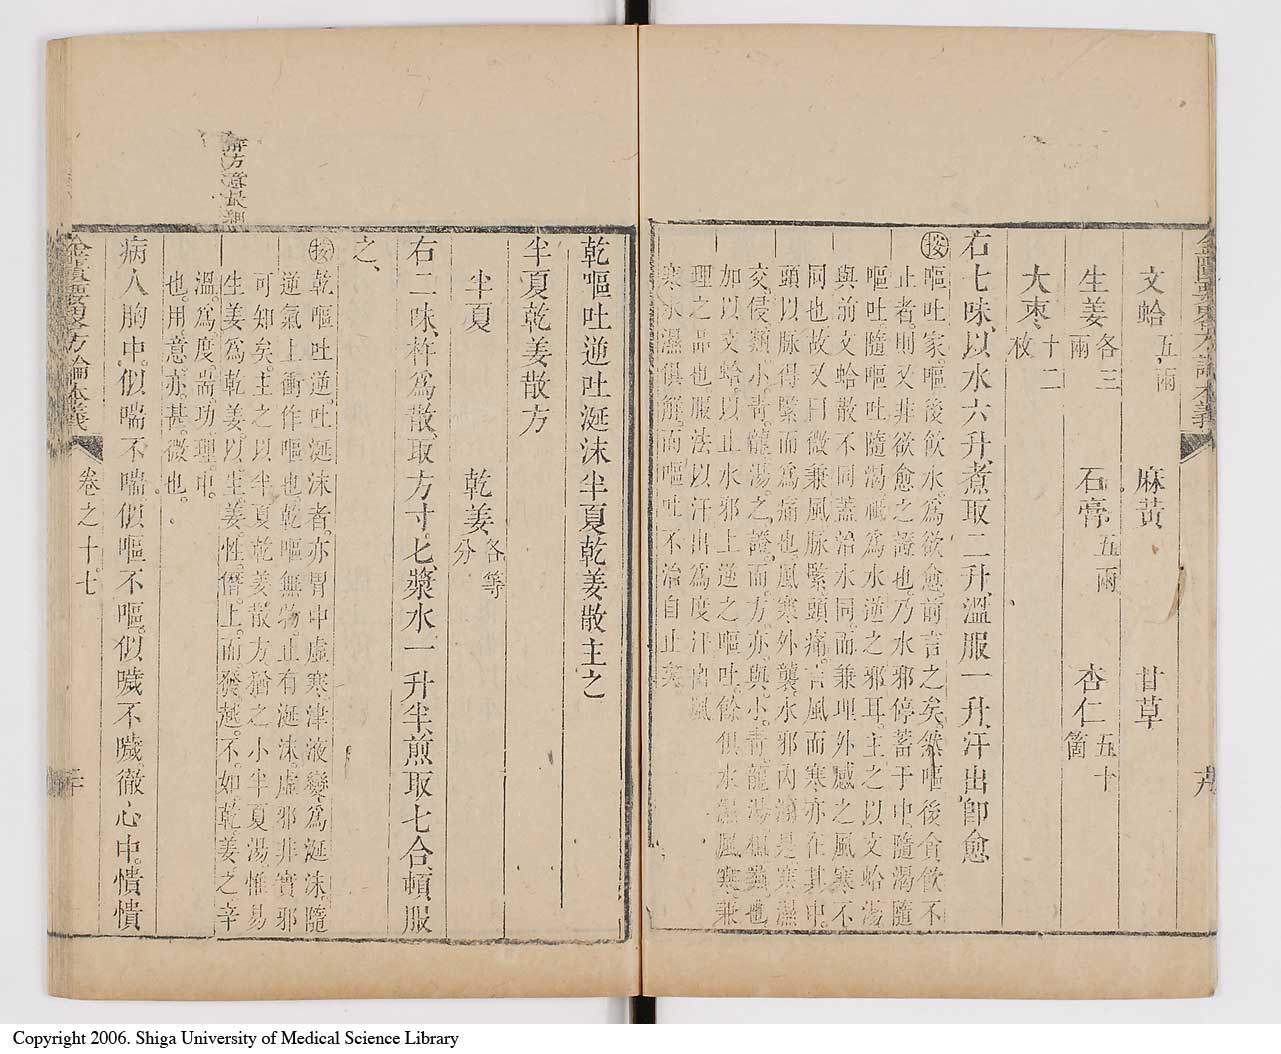 文蛤五兩 麻黃 甘草
生姜各三兩 石膏五兩 杏仁五十箇
大棗十二枚
右七味以水六升煮取二升溫服一升汗出卽愈
按嘔吐家嘔後飲水爲欲愈前言之矣然嘔後貪飲不
止者則又非欲愈之證也乃水邪停蓄于中隨渴隨
嘔吐隨嘔吐隨渴秪爲水逆之邪耳主之以文蛤湯
與前文蛤散不同蓋治水同而兼理外感之風寒不
同也故又曰微兼風脉緊頭痛言風而寒亦在其中
頭以脉得緊而爲痛也風寒外襲水邪內瀦是寒濕
交侵類小靑龍湯之證而方亦與小靑龍湯相類也
如以文蛤以止水邪上逆之嘔吐餘俱水濕風寒兼
理之品也服法以汗出爲度汗出風
寒水濕俱解而嘔吐不治自止矣
乾嘔吐逆吐涎沫半夏乾姜散主之
半夏乾姜散方
半夏 乾姜各等分
右二味杵爲散取方寸匕漿水一升半煎取七合頓服
之
按乾嘔吐逆吐涎沫者亦胃中虛寒津液變爲涎沫隨
逆氣上衝作嘔也乾嘔無物止有涎沫虛邪非實邪
可知矣主之以半夏乾姜散方猶之小半夏湯惟易
生姜爲乾姜以生姜性僭上而發越不如乾姜之辛
溫爲度耑功理中
也用意亦甚微也
病人胸中似喘不喘似嘔不嘔似噦不噦徹心中憒憒
金匱要畧方論本義 卷之十七
辨方意最細